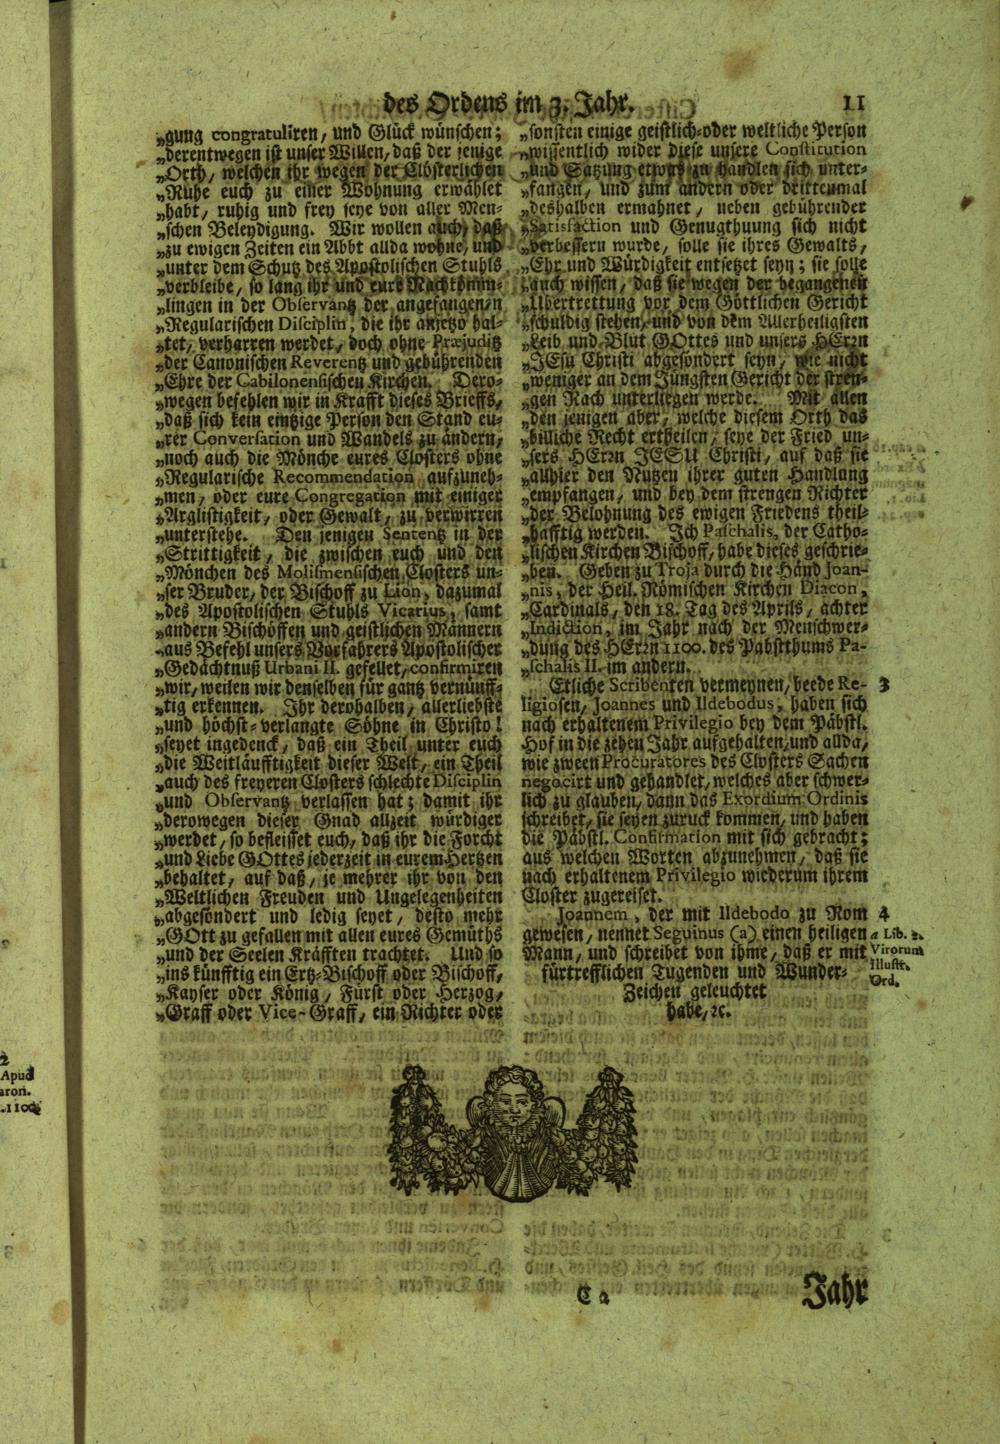 des Ordens im 3. Jahr. 11
„gung congratuliren, und Glück wünschen;
„derentwegen ist unser Willen, daß der jenige
„Orth, welchen ihr wegen der Clösterlichen
„Ruhe euch zu einer Wohnung erwählet
„habt, ruhig und frey seye von aller Men-
„schen Beleydigung. Wir wollen auch, daß
„zu ewigen Zeiten ein Abbt allda wohne, und
„unter dem Schutz des Apostolischen Stuhls
„verbleibe, so lang ihr und eure Nachkömm-
„lingen in der Observantz der angefangenen
„Regularischen Disciplin, die ihr anjetzo hal-
„tet, verharren werdet, doch ohne Præjuditz
„der Canonischen Reverentz und gebührenden
„Ehre der Cabilonensischen Kirchen. Dero-
„wegen befehlen wir in Krafft dieses Brieffs,
„daß sich kein eintzige Person den Stand eu-
„rer Conversation und Wandels zu ändern,
„noch auch die Mönche eures Closters ohne
„Regularische Recommendation aufzuneh-
„men, oder eure Congregation mit einiger
„Arglistigkeit, oder Gewalt, zu verwirren
„unterstehe. Den jenigen Sententz in der
„Strittigkeit, die zwischen euch und den
„Mönchen des Molismensischen Closters un-
„ser Bruder, der Bischoff zu Lion, dazumal
„des Apostolischen Stuhls Vicarius, samt
„andern Bischöffen und geistlichen Männern
„aus Befehl unsers Vorfahrers Apostolischer
„Gedächtnuß Urbani II. gefellet, confirmiren
„wir, weilen wir denselben für gantz vernünff-
„tig erkennen. Ihr derohalben, allerliebste
„und höchst-verlangte Söhne in Christo!
„seyet ingedenck, daß ein Theil unter euch
„die Weitläufftigkeit dieser Welt, ein Theil
„auch des freyeren Closters schlechte Disciplin
„und Observantz verlassen hat; damit ihr
„derowegen dieser Gnad allzeit würdiger
„werdet, so befleisset euch, daß ihr die Forcht
„und Liebe GOttes jederzeit in eurem Hertzen
„behaltet, auf daß, je mehrer ihr von den
„Weltlichen Freuden und Ungelegenheiten
„abgesöndert und ledig seyet, desto mehr
„GOtt zu gefallen mit allen eures Gemüths
„und der Seelen Kräfften trachtet. Und so
„ins künfftig ein Ertz-Bischoff oder Bischoff,
„Kayser oder König, Fürst oder Herzog,
„Graff oder Vice-Graff, ein Richter oder
„sonsten einige geistlich- oder weltliche Person
„wissentlich wider diese unsere Constitution
„und Satzung etwas zu handlen sich unter-
„fangen, und zum andern oder drittenmal
„deshalben ermahnet, neben gebührender
„Satisfaction und Genugthuung sich nicht
„verbessern wurde, solle sie ihres Gewalts,
„Ehr und Würdigkeit entsetzet seyn; sie solle
„auch wissen, daß sie wegen der begangenen
„Ubertrettung vor dem Göttlichen Gericht
„schuldig stehen, und von dem Allerheiligsten
„Leib und Blut GOttes und unsers HErrn
„JEsu Christi abgesöndert seyn, wie nicht
„weniger an dem Jüngsten Gericht der stren-
„gen Rach unterliegen werde. Mit allen
„den jenigen aber, welche diesem Orth das
„billiche Recht ertheilen, seye der Fried un-
„sers HErrn JESU Christi, auf daß sie
„allhier den Nutzen ihrer guten Handlung
„empfangen, und bey dem strengen Richter
„der Belohnung des ewigen Friedens theil-
„hafftig werden. Ich Paschalis, der Catho-
„lischen Kirchen Bischoff, habe dieses geschrie-
„ben. Geben zu Troja durch die Händ Joan-
„nis, der Heil. Römischen Kirchen Diacon,
„Cardinals, den 18. Tag des Aprils, achter
„Indiction, im Jahr nach der Menschwer-
„dung des HErrn 1100. des Pabstthums Pa-
„schalis II. im andern.
Etliche Scribenten vermeynen, beede Re- 3
ligiosen, Joannes und Ildebodus, haben sich
nach erhaltenem Privilegio bey dem Päbstl.
Hof in die zehen Jahr aufgehalten, und allda,
wie zween Procuratores des Closters Sachen
negocirt und gehandlet, welches aber schwer-
lich zu glauben, dann das Exordium Ordinis
schreibet, sie seyen zuruck kommen, und haben
die Päbstl. Confirmation mit sich gebracht;
aus welchen Worten abzunehmen, daß sie
nach erhaltenem Privilegio wiederum ihrem
Closter zugereiset.
Joannem, der mit Ildebodo zu Rom 4
gewesen, nennet Seguinus (a) einen heiligen
Mann, und schreibet von ihme, daß er mit
fürtrefflichen Tugenden und Wunder-
Zeichen geleuchtet
habe, ꝛc.
a Lib. 2.
Virorum
Illustr.
Ord.
2
Apud
aron.
.1100.
C 2 Jahr